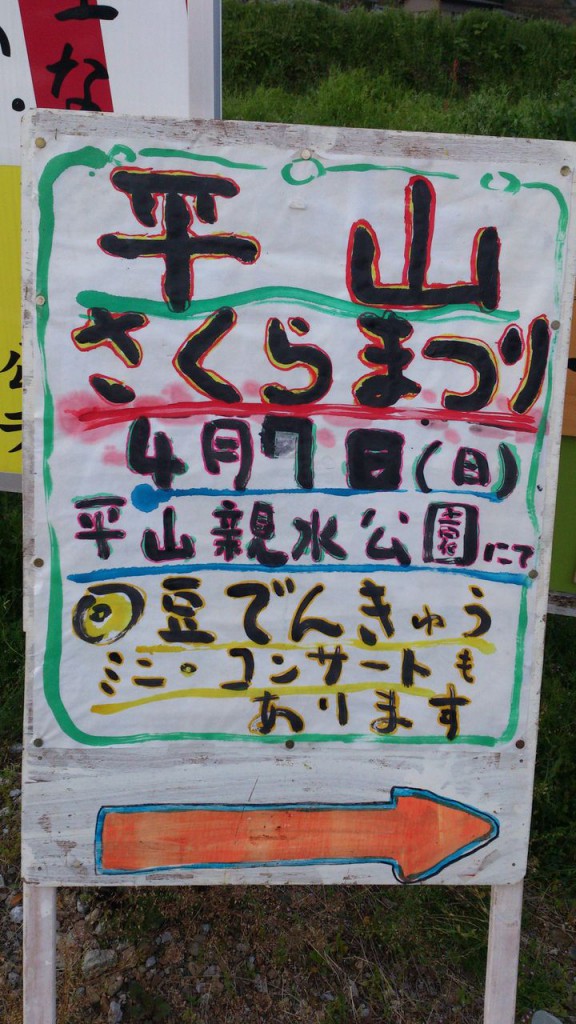 な
平山
さくらまつり
4月7日(日)
平山親水公園にて
豆でんきゅう
ミニ・コンサートも
あります